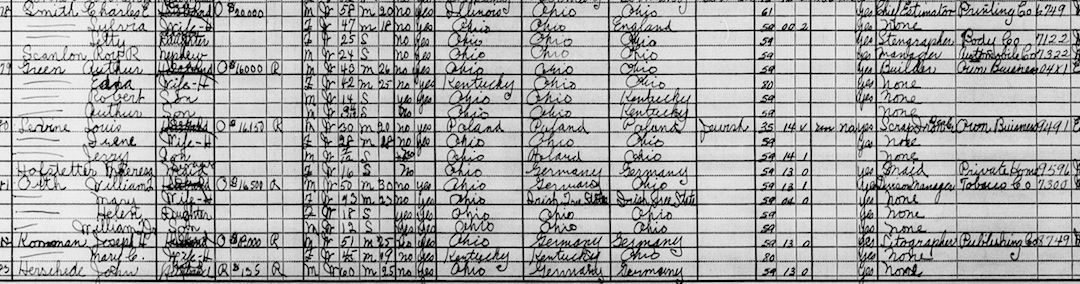 78 Smith Charles E. O $20000 M W 58 M 20 no yes Illinois Ohio Ohio 61 yes Chief Estimator Printing Co 6749
Wife-H F W 47 M 18 no yes Ohio Ohio England 59 00 2 yes None
Daughter F W 25 S no yes Ohio Ohio Ohio 59 yes Stengrapher Body Co 7122
Scanlon Roy R nephew M W 24 S no yes Ohio Ohio Ohio 59 yes Manager Automobile Co 7322
79 Green Authur O $16000 R M W 43 M 26 no yes Ohio Ohio Ohio 59 yes Builder Own Business 04X1
Edna Wife-H F W 42 M 25 no yes Kentucky Ohio Ohio 80 yes None
Robert Son M W 14 S yes yes Ohio Ohio Kentucky 59 yes None
Authur Son M W S no Ohio Ohio Kentucky 59 None
80 Levine Louis O $16150 R M W 30 M 20 no yes Poland Poland Poland Jewish 35 14 V na yes Scrap Own Business 9491
Wife-H F W 28 M 18 no yes Ohio Ohio Ohio 59 yes None
Jerry Son M W S no Ohio Poland Ohio 59 14 1 None
Hofstetter Theresa Maid F W 16 S no Ohio Germany Germany 59 13 0 yes Maid Private Home 9596
81 Orth William O $16500 R M W 50 M 30 no yes Ohio Germany Ohio 59 13 1 yes Tobacco Co 7300
Mary Wife-H F W 43 M 23 no yes Ohio Irish Free State Irish Free State 59 04 0 yes None
Helen Daughter F W 18 S yes yes Ohio Ohio Ohio 59 yes None
William Jr Son M W 12 S yes yes Ohio Ohio Ohio 59 yes None
82 Joseph H O R M W 51 M 25 no yes Ohio Germany Germany 59 13 0 yes Litographer Publishing Co 8749
Mary C. Wife-H F W 45 M 19 no yes Kentucky Kentucky Ohio 80 yes None
83 Herschede John R $135 R M W 60 M 25 no yes Ohio Germany Germany 59 13 0 yes None